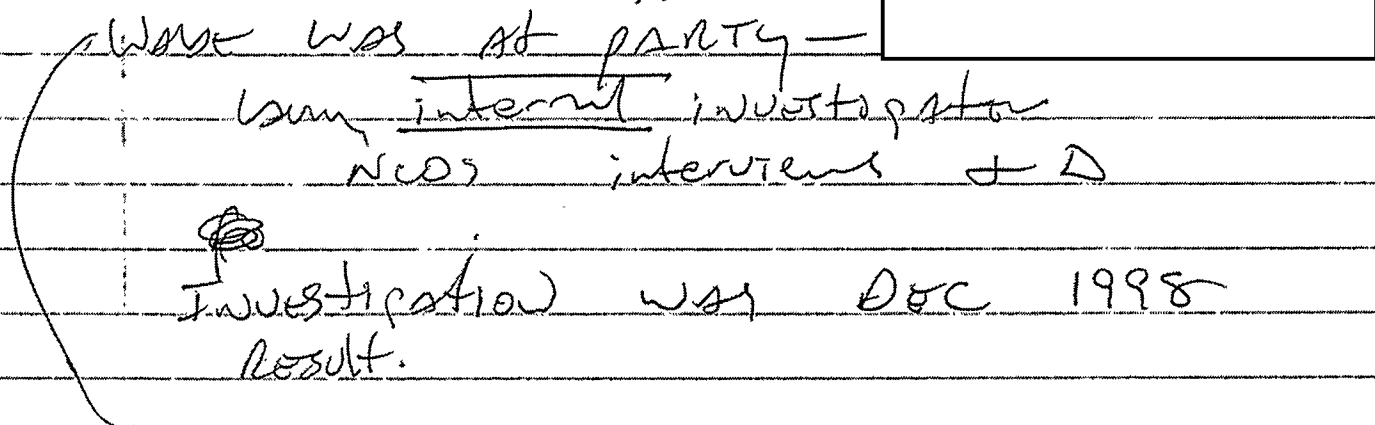 was At PARTY —
internal investigation
NCOS interviews + D
Investigation was DEC 1998
Result.